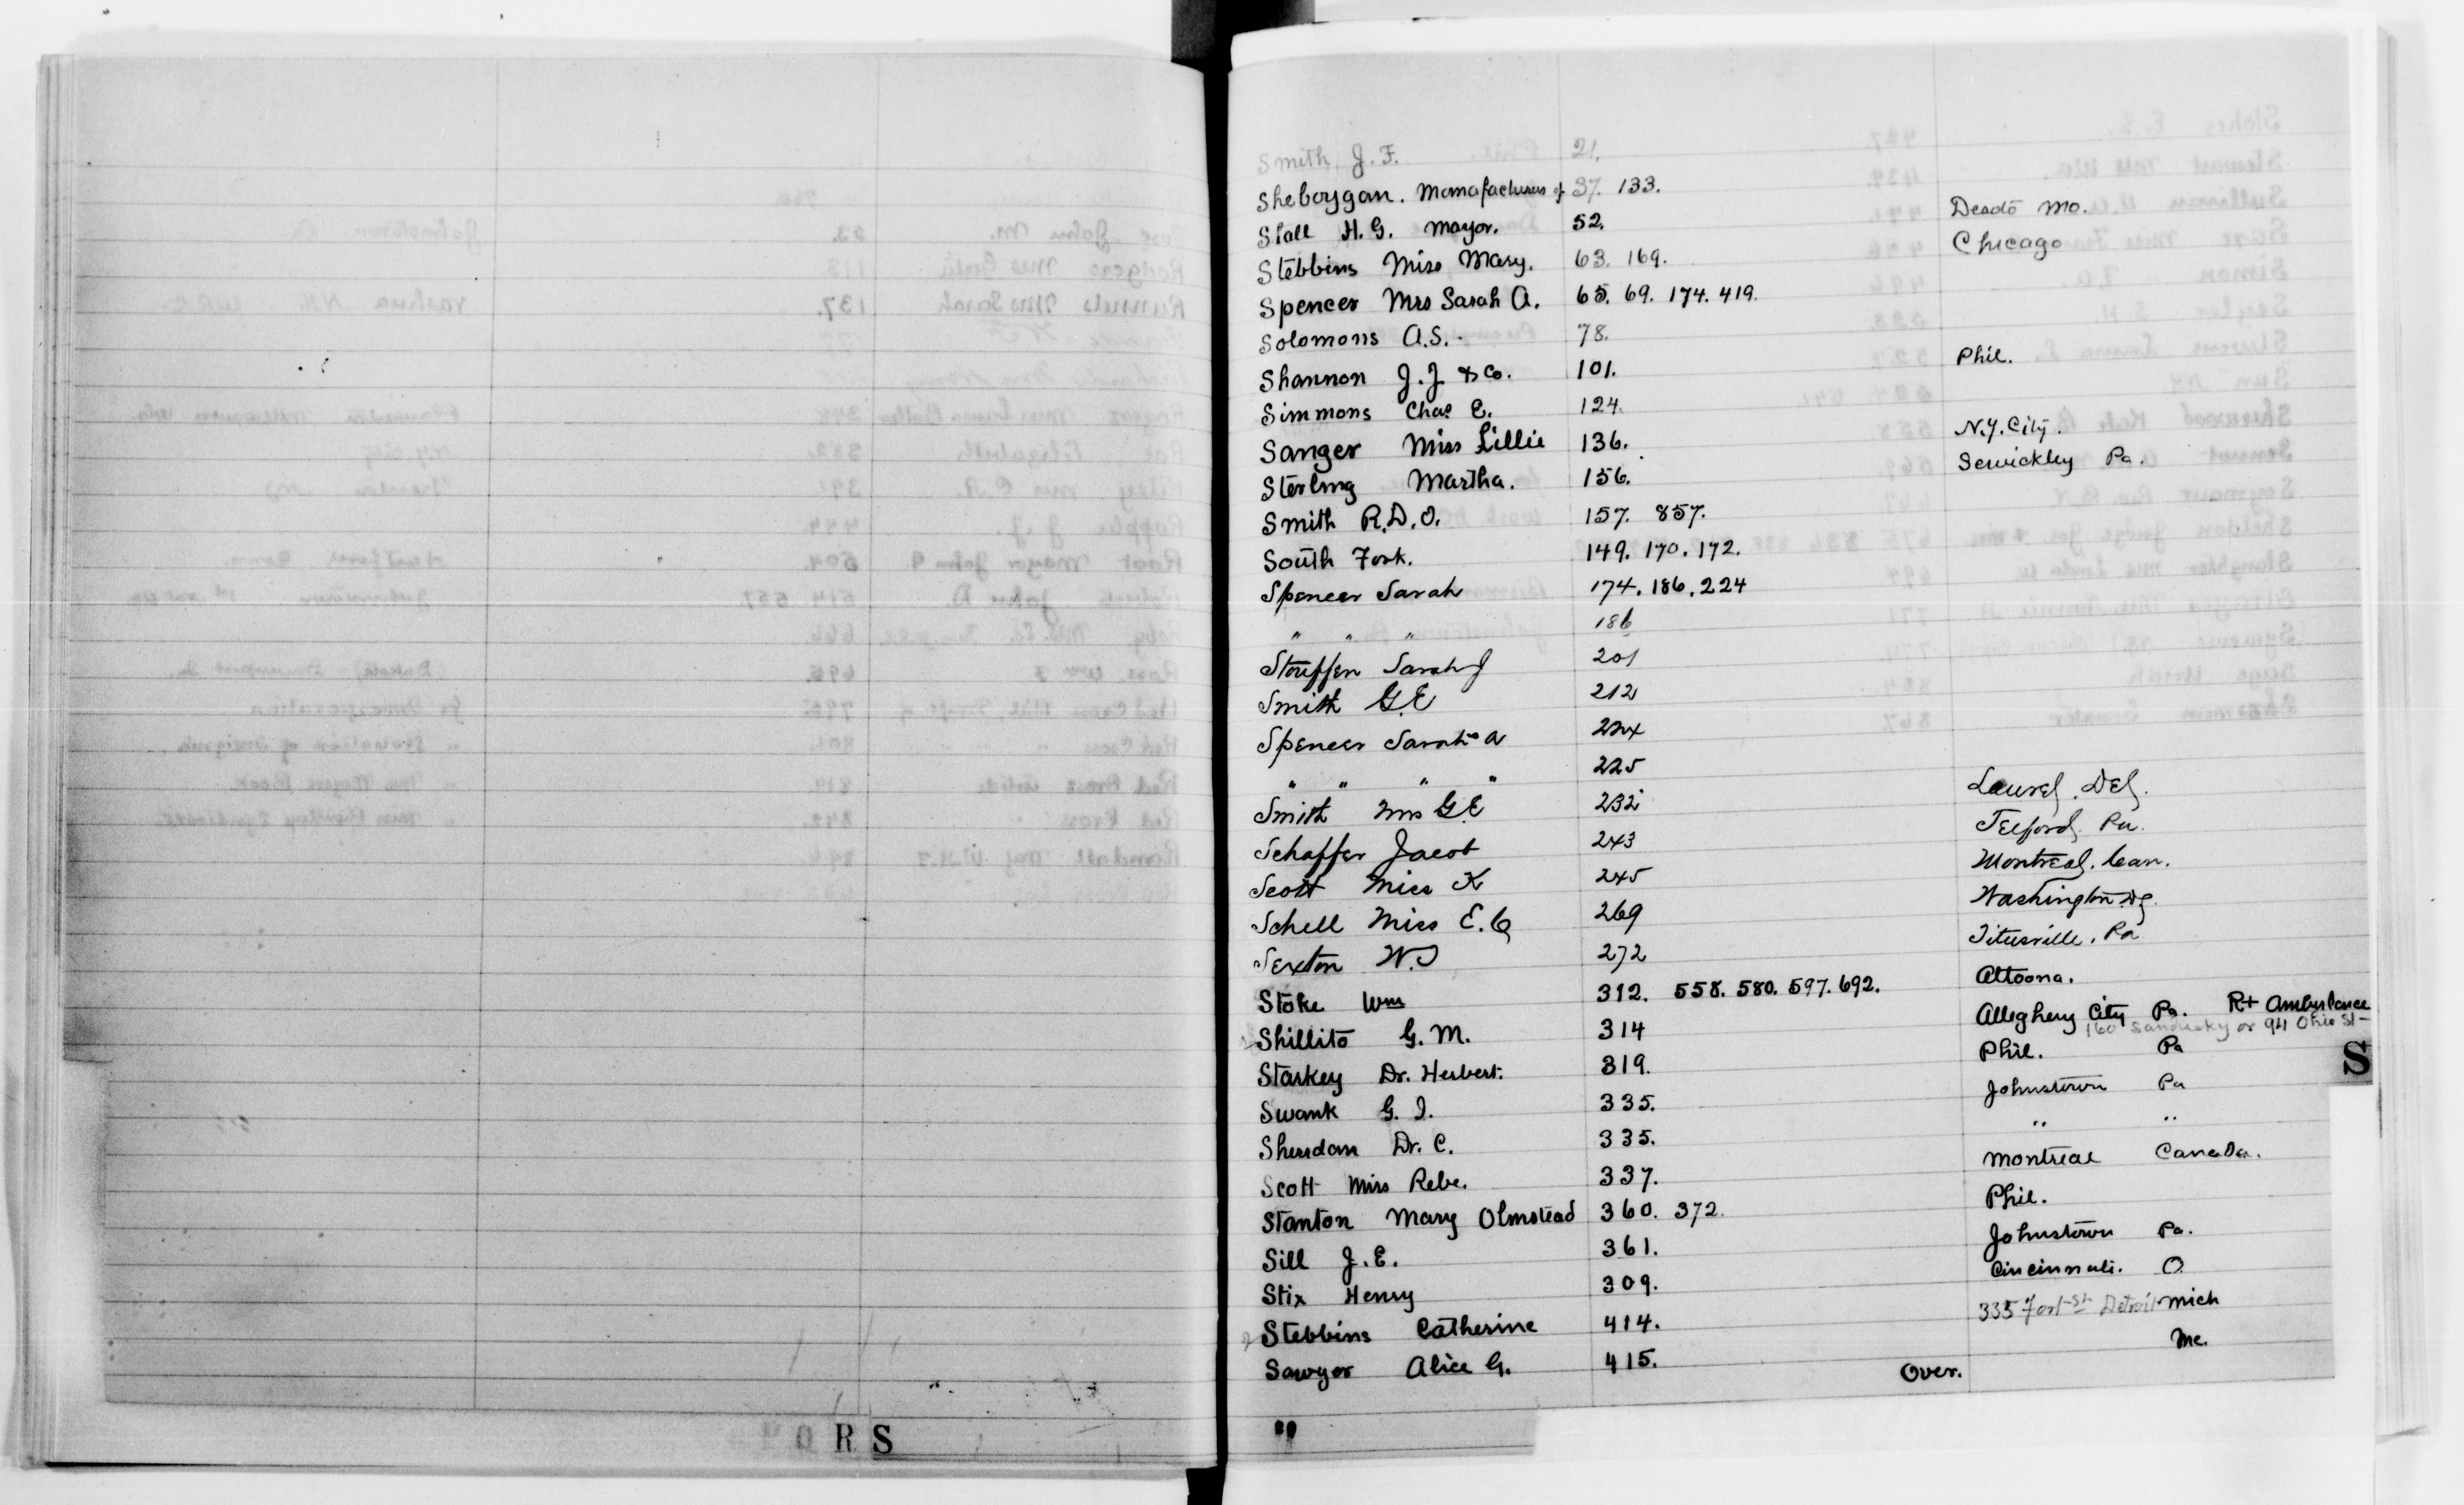 Smith, J. F. 21.
Sheboygan. Manafacturers of 37. 133.
Stall H. G. Mayor. 52. Desoto Mo.
Stebbins Miss Mary. 63. 169. Chicago
Spencer Mrs Sarah A. 65. 69. 174. 419.
Solomons A.S. 78.
Shannon J. J & Co. 101. Phil.
Simmons Chas E. 124.
Sanger Miss Lillie 136. N.Y. City.
Sterling Martha. 156. Sewickley Pa.
Smith R.D.O. 157. 857.
South Fork. 149. 170. 172.
Spencer Sarah 174. 186. 224
" " " 186
Stouffer Sarah J 201
Smith G.E 212
Spencer Sarah A 224
" " " " 225
Smith Mrs G.E 232 Laurel, Del.
Schaffer Jacob 243 Telford Pa.
Scott Miss K 245 Montreal. Can.
Schell Miss E. C 269 Washington DC.
Sexton W. J 272 Titusville, Pa
Stoke Wm 312. 558. 580. 597. 692. Altoona.
Shillito G. M. 314 Allegheny City Pa. R+ Ambulance
160 Sandusky or 94 Ohio St-
Starkey Dr. Herbert. 319. Phil. Pa
Swank G. J. 335. Johnstown Pa
Sheridan Dr. C. 335. " "
Scott Miss Rebe. 337. Montreal Canada.
Stanton Mary Olmstead 360. 372. Phil.
Sill J. E. 361. Johnstown Pa.
Stix Henry 309. Cincinnati. O.
Stebbins Catherine 414. 335 Fort St Detroit Mich
Sawyer Alice G. 415. Me.
Over.
S
Q R S